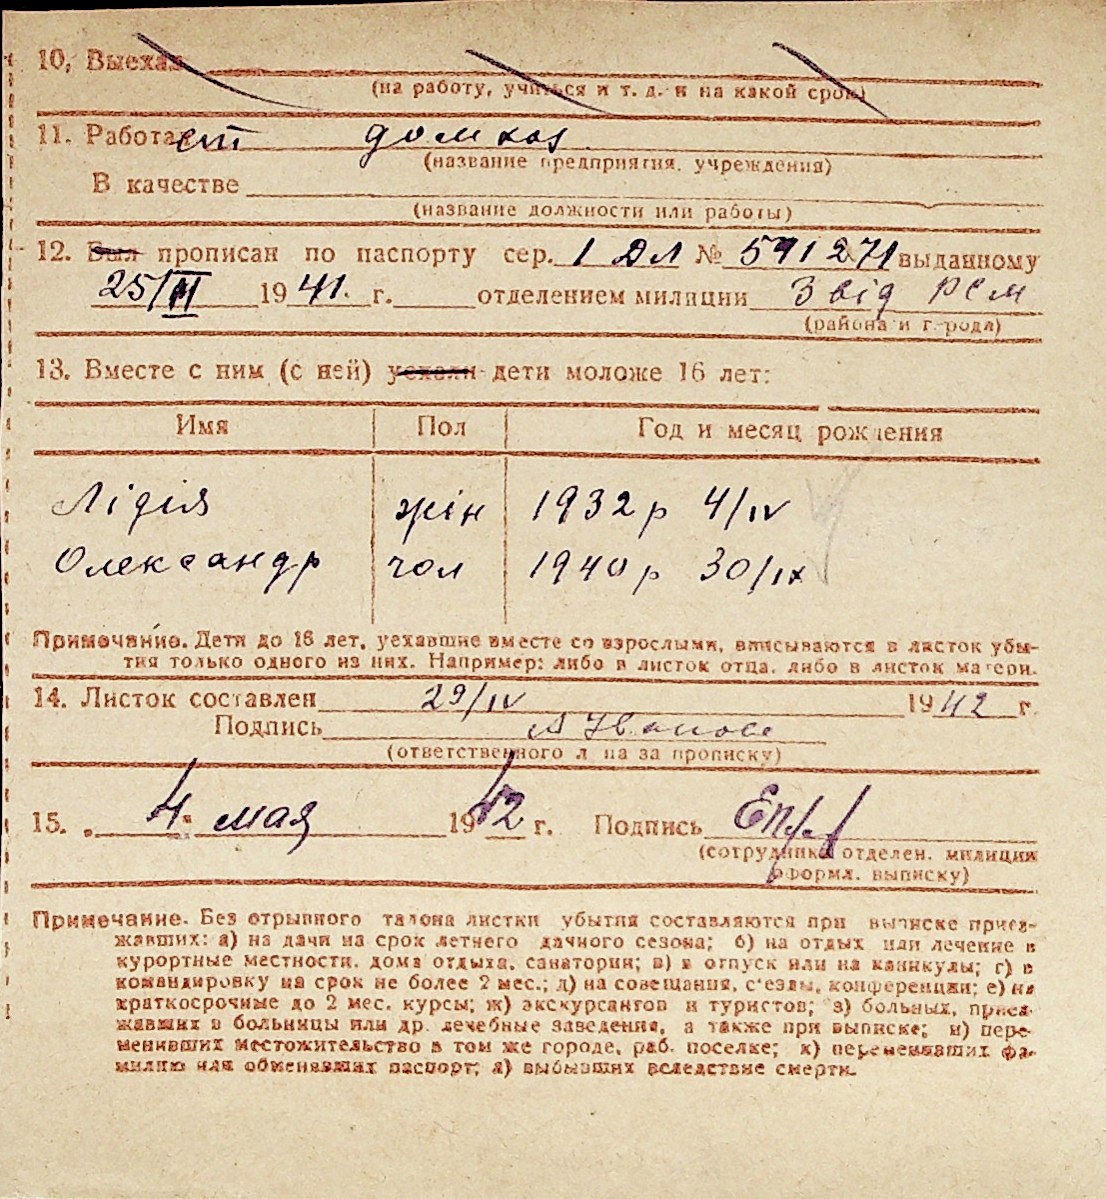 10. Выехал
(на работу, учиться и т. д. и на какой срок)
11. Работает домхоз
(название предприятия, учреждения)
В качестве
(название должности или работы)
12. Был прописан по паспорту сер. 1 ДЛ № 591271 выданному
25/III 1941 г. отделением милиции 3 від РСМ
(района и города)
13. Вместе с ним (с ней) уехали дети моложе 16 лет:
Имя Пол Год и месяц рождения
Лідія жін 1932 р 4/IV
Олександр чол 1940 р 30/IX
Примечание. Дети до 16 лет, уехавшие вместе со взрослыми, вписываются в листок убы-
тия только одного из них. Например: либо в листок отца, либо в листок матери.
14. Листок составлен 29/IV 1942 г.
Подпись
(ответственного лица за прописку)
15. „ 4 " мая 1942 г. Подпись
(сотрудника отделен. милиции
оформл. выписку)
Примечание. Без отрывного талона листки убытия составляются при выписке приез-
жавших: а) на дачи на срок летнего дачного сезона; б) на отдых или лечение в
курортные местности, дома отдыха, санатории; в) в отпуск или на каникулы; г) в
командировку на срок не более 2 мес.; д) на совещания, съезды, конференции; е) на
краткосрочные до 2 мес. курсы; ж) экскурсантов и туристов; з) больных, приез-
жавших в больницы или др. лечебные заведения, а также при выписке; и) пере-
менивших местожительство в том же городе, раб. поселке; к) переменивших фа-
милию или обменявших паспорт; л) выбывших вследствие смерти.